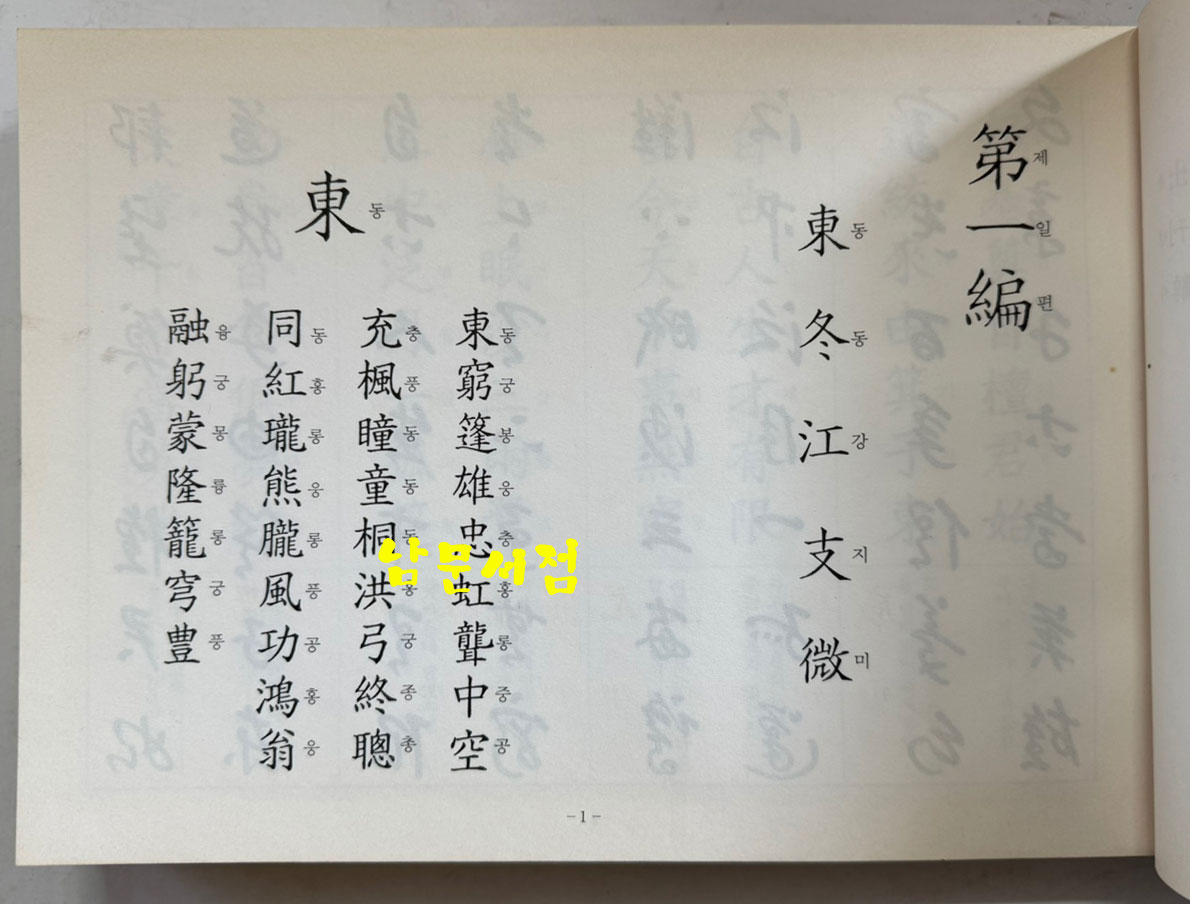 第一編
제일편
東冬江支微
동동강지미
東
동
東窮篷雄忠虹聾中空
동궁봉웅충홍롱중공
充楓瞳童桐洪弓終聰
충풍동동동홍궁종총
同紅瓏熊朧風功鴻翁
동홍롱웅롱풍공홍웅
融躬蒙隆籠穹豊
융궁몽륭롱궁풍
남문서점
-1-